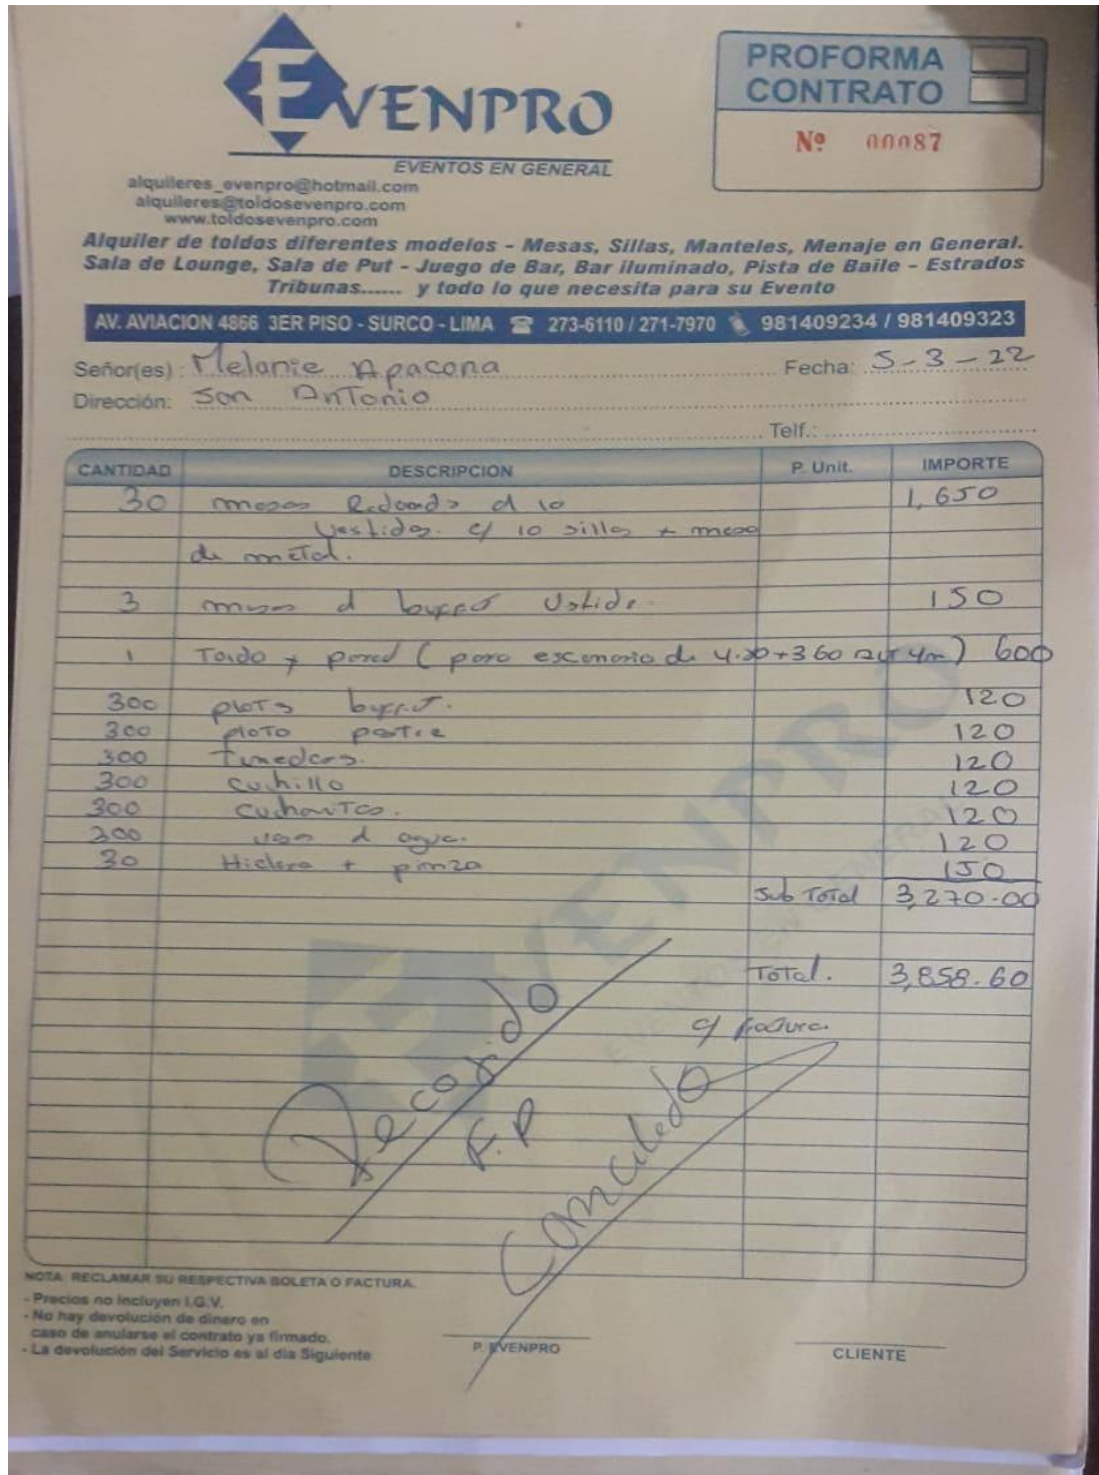 EVENPRO
EVENTOS EN GENERAL
PROFORMA
CONTRATO
Nº 00087
alquileres_evenpro@hotmail.com
alquileres@toldosevenpro.com
www.toldosevenpro.com
Alquiler de toldos diferentes modelos - Mesas, Sillas, Manteles, Menaje en General.
Sala de Lounge, Sala de Put - Juego de Bar, Bar iluminado, Pista de Baile - Estrados
Tribunas...... y todo lo que necesita para su Evento
AV. AVIACION 4866 3ER PISO - SURCO - LIMA 273-6110 / 271-7970 981409234 / 981409323
Señor(es) : Melanie Apacona Fecha: 5-3-22
Dirección: San Antonio
Telf.:
CANTIDAD DESCRIPCION P. Unit. IMPORTE
30 mesas Redonda d 10 1,650
Vestidas. c/ 10 sillas + mesa
de metal.
3 mesas d buffet Vestida. 150
1 Toldo y pared ( para escenario de 4.20+360 4m) 600
300 plato buffet. 120
300 plato postre 120
300 Tenedores. 120
300 cuchillo 120
300 cucharitas. 120
300 vaso d agua. 120
30 Hielera + pinza 150
Sub Total 3,270.00
Total. 3,858.60
c/ factura.
Recogido
F.P
Cancelado
NOTA: RECLAMAR SU RESPECTIVA BOLETA O FACTURA.
- Precios no incluyen I.G.V.
- No hay devolución de dinero en
caso de anularse el contrato ya firmado.
- La devolución del Servicio es al dia Siguiente
P. EVENPRO
CLIENTE